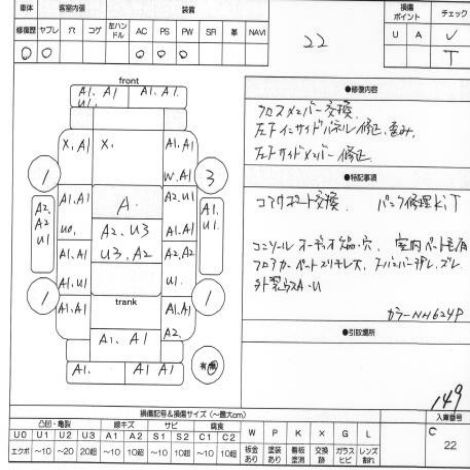 車体 客室内張 装備 損傷ポイント チェック
修復歴 ヤブレ 穴 コゲ 左ハンドル AC PS PW SR 革 NAVI U A レ
○ ○ ○ ○ ○ T
22
front
A1. A1 A1. A1.
U1.
●修復内容
クロスメンバー交換.
左下インサイドパネル修正, 歪み.
左下サイドメンバー修正.
X, A1 X. A1. A1
W. A1
1 3
●特記事項
コアサポート交換. パンク修理KiT
A1. A1 A. A2. U1
A2. A2 U1 U0. A2. U3 A1. A1 A1. U1.
A1. A1 U3. A2 A2. A2
U1 U1.
室内ペット毛有
1 A1. A1 1
trank
A1. A1 A2.
カラーNH624P
●引取場所
A1. A1 A1 有
149
損傷記号&損傷サイズ(〜最大cm) 入庫番号
凸凹・亀裂 線キズ サビ 腐食 C
U0 U1 U2 U3 A1 A2 S1 S2 C1 C2 W P K X G L 22
エクボ 〜10 〜20 20超 〜10 10超 〜10 10超 〜10 10超 板金あり 塗装あり 看板塗消 交換跡 ガラスヒビ レンズ割れ